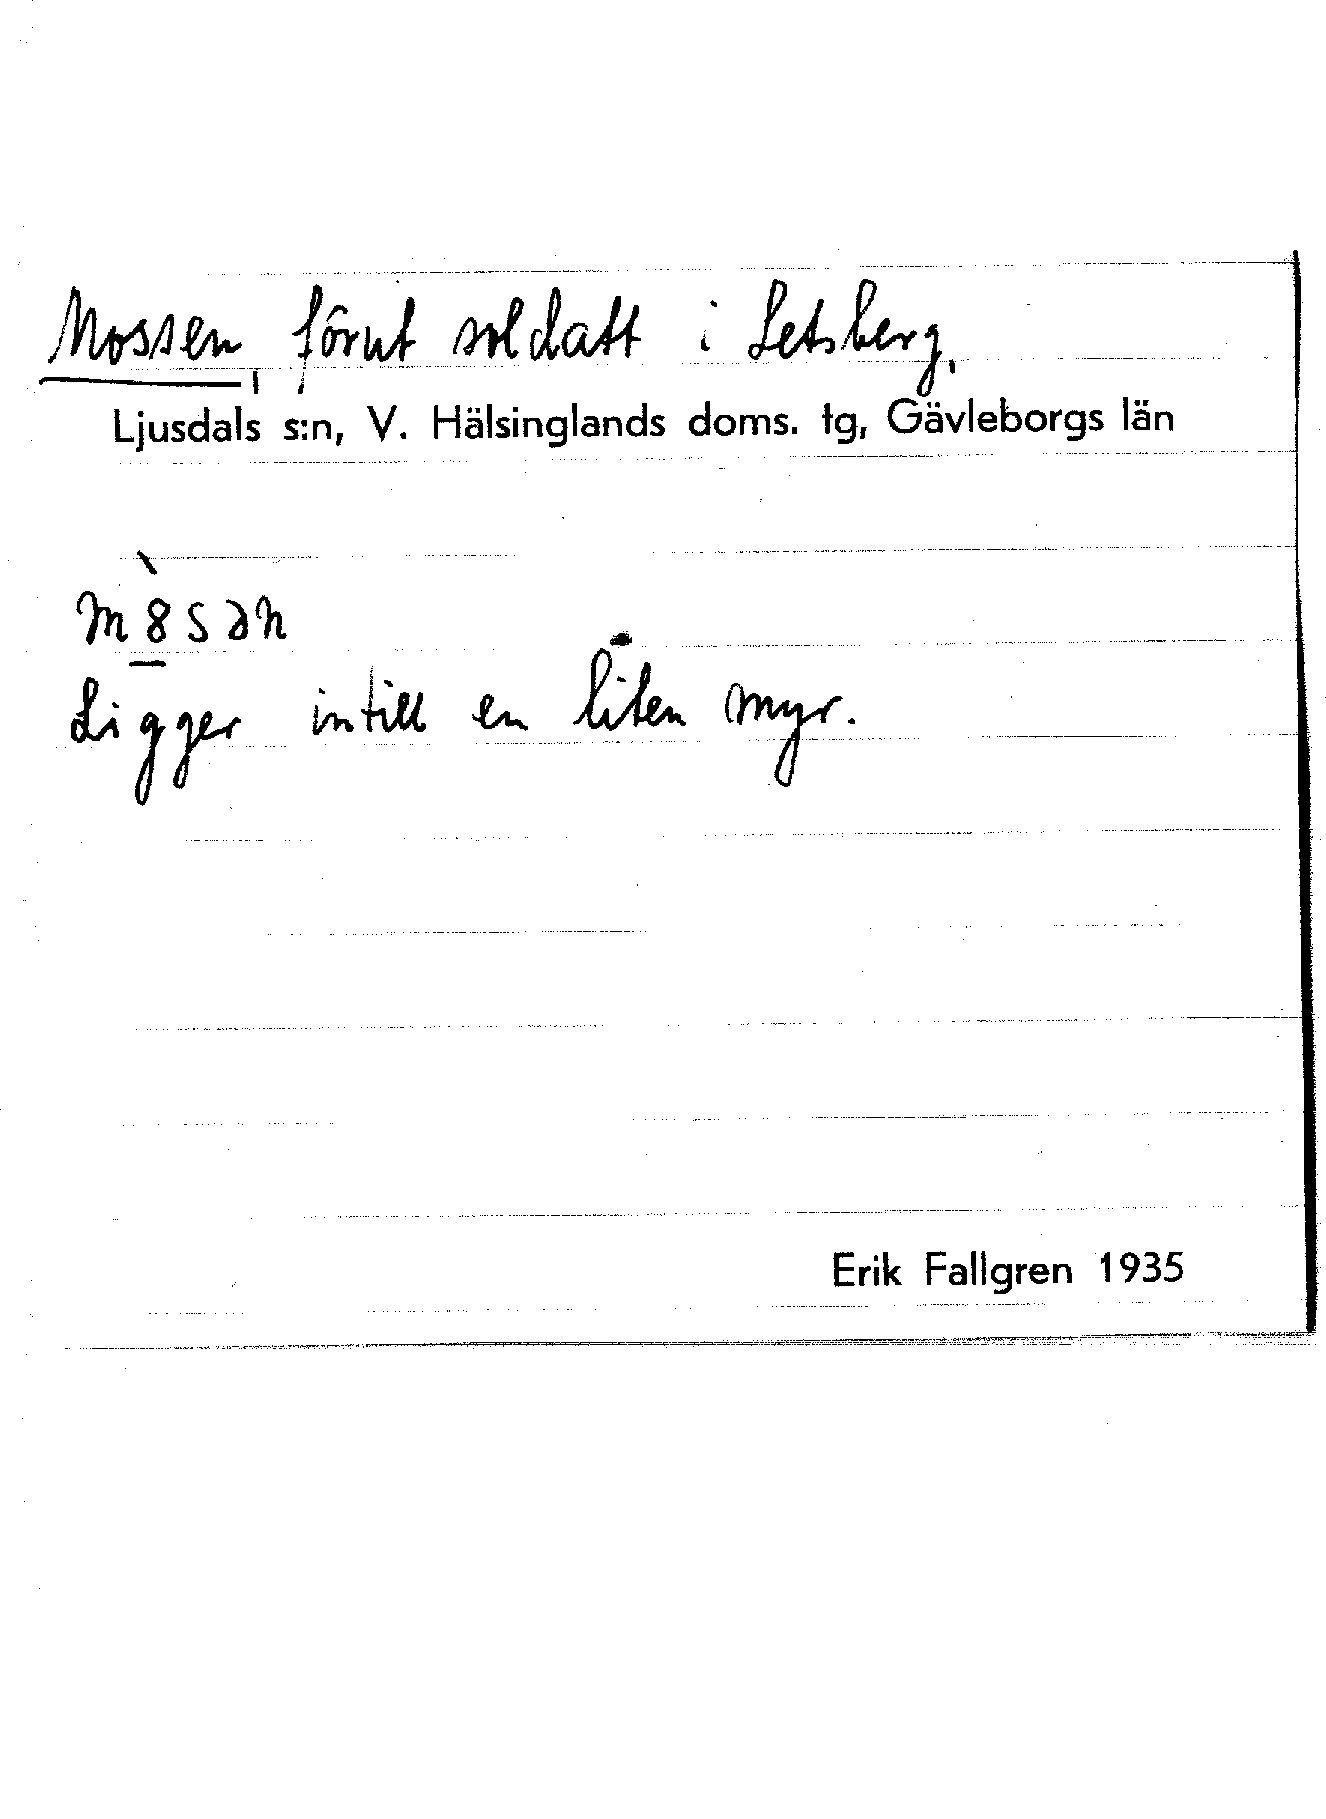 Mossen, förut soldatt i Letsberg.
Ljusdals s:n, V. Hälsinglands doms. tg, Gävleborgs län
m8̲̀sən
Ligger intill en liten myr.
Erik Fallgren 1935